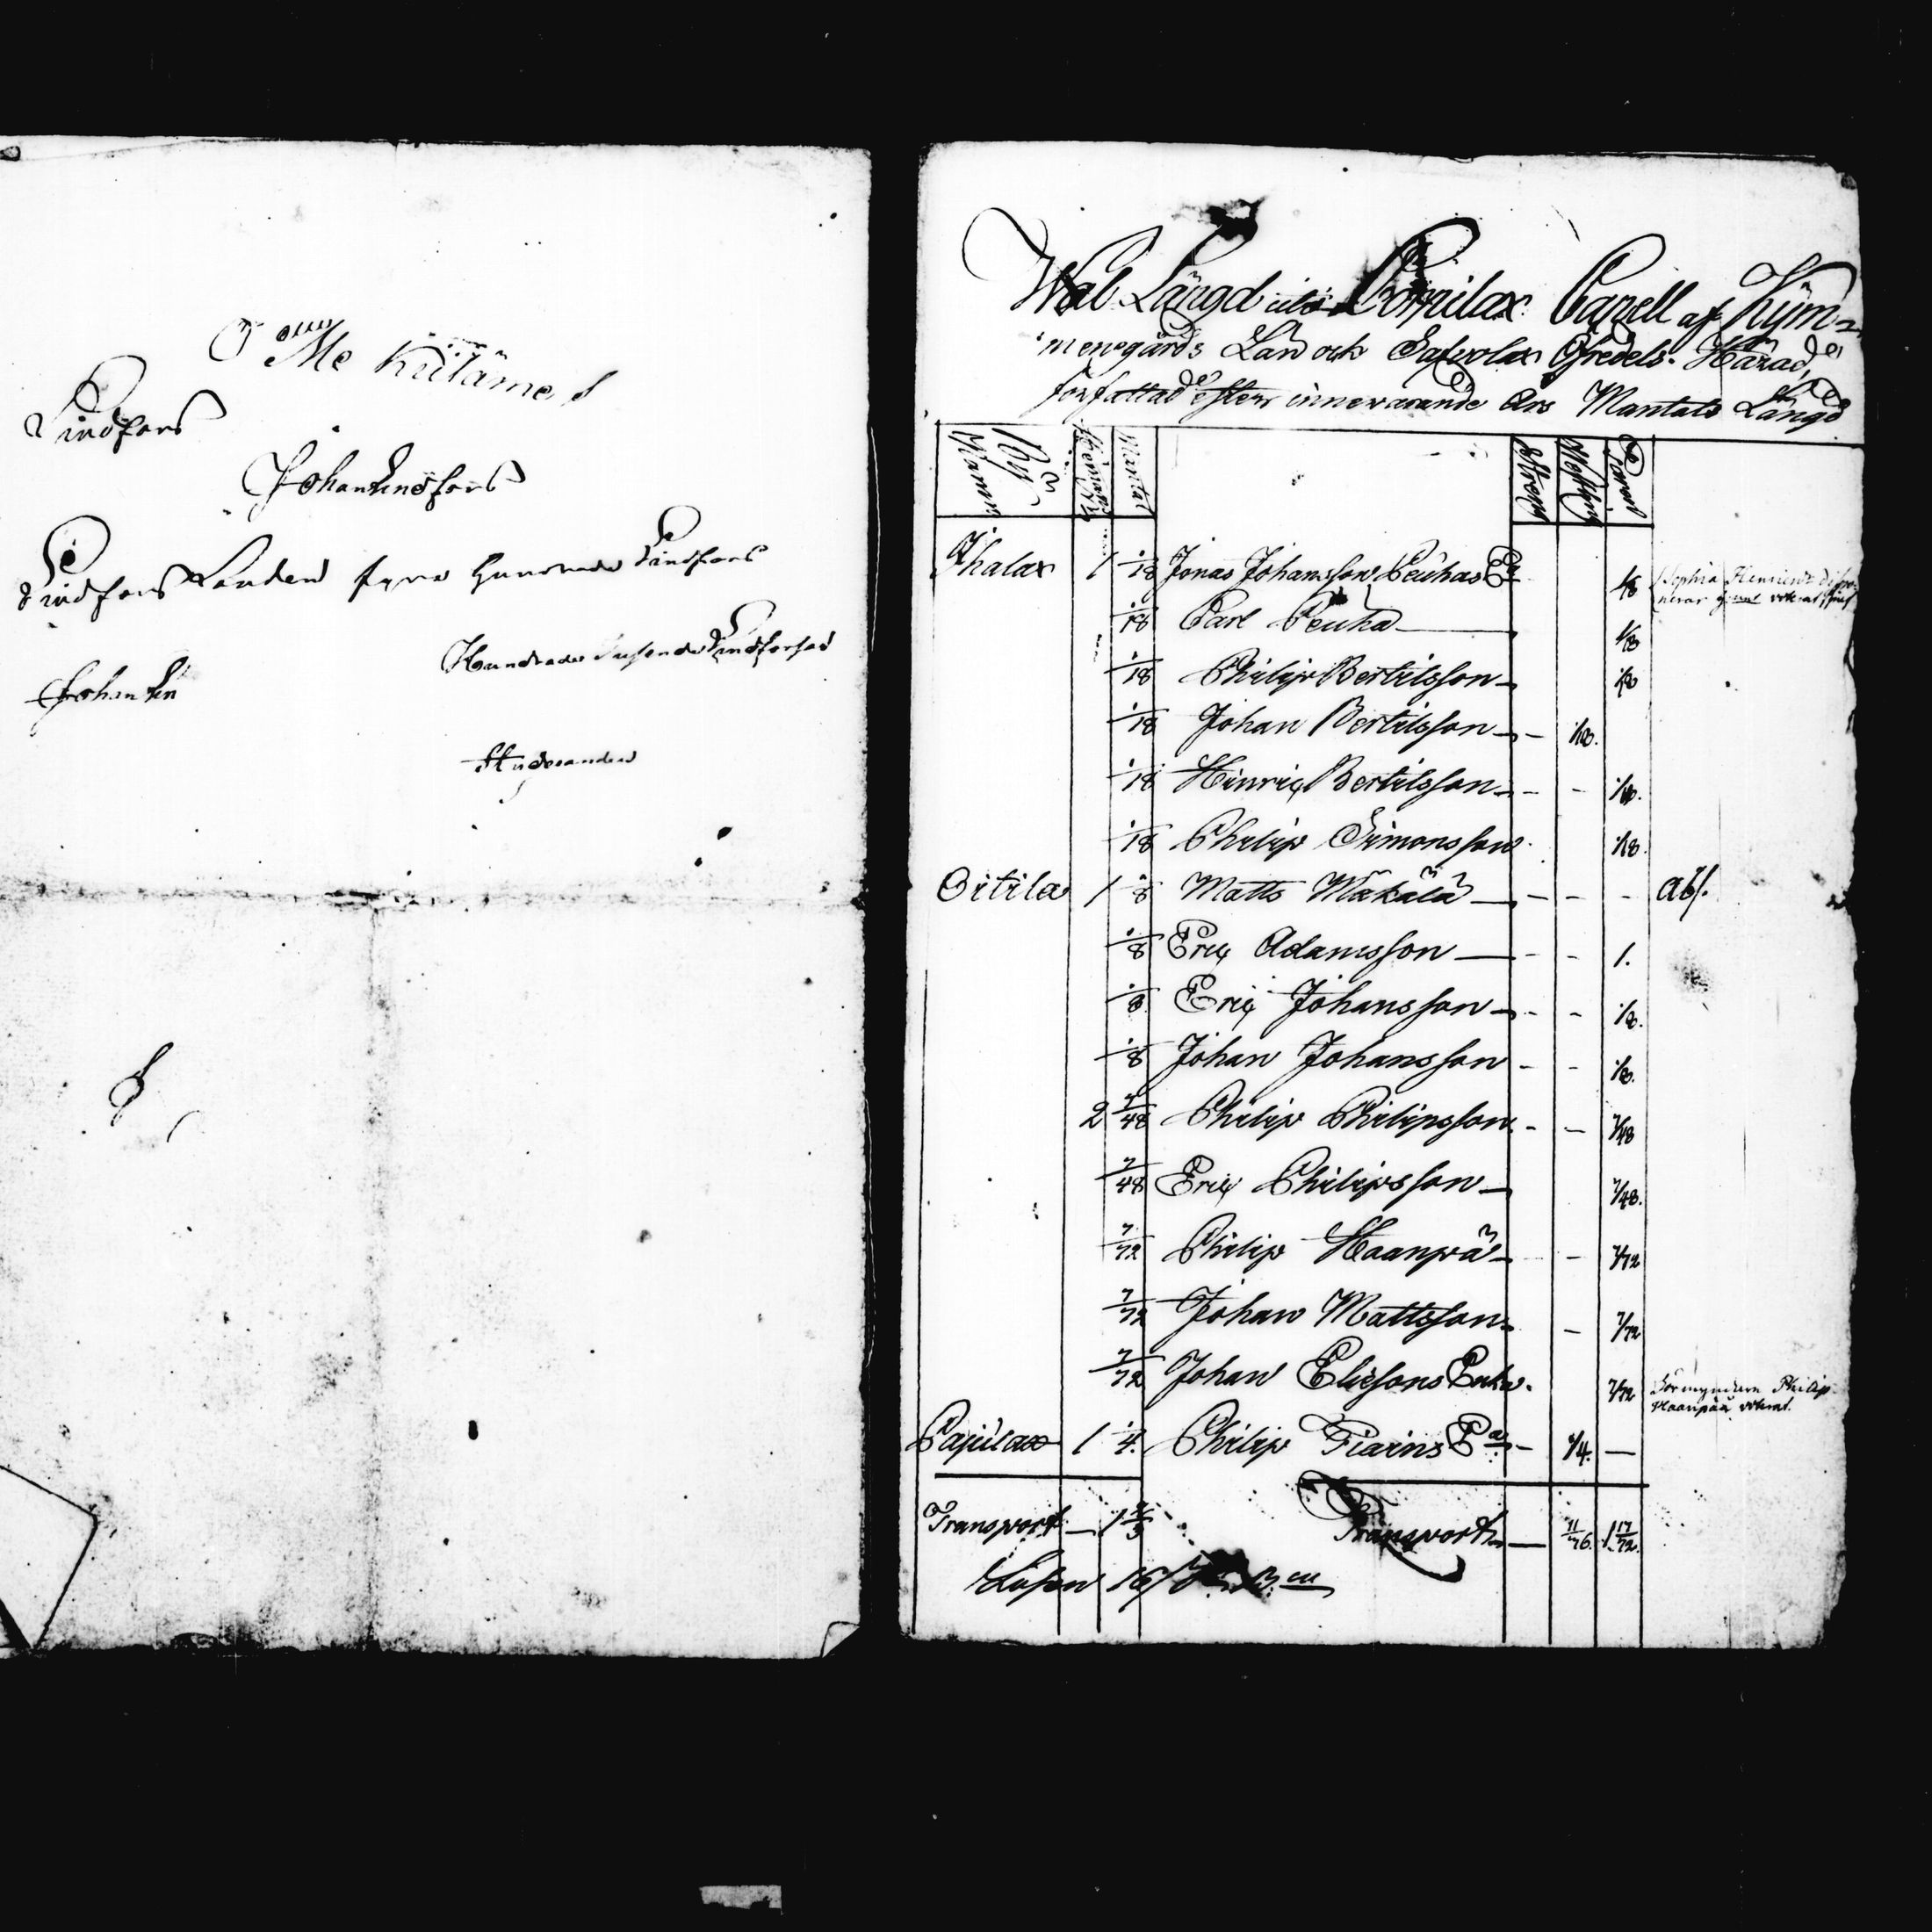 Me Küläme
Lindfors
Johan Lindfors
Lindfors Landen fyra Hunrade Lindfors
Hundrade Tusende Lindforsar
Johan Lin
Studeranden
Wal Längd uti Capell af Kym-
menegårds Län och Safvolax Öfredels Härad,
författad efter innevarande års Mantals Längd
By Namn Hemman Mantal Tarvel
Ihalax 1 1/18 Jonas Johansson Peuhas Ea 1/18 Sophia Henricsdr
1/18 Carl Peuha 1/18
1/18 Philip Bertilsson 1/18
1/18 Johan Bertilsson - 1/18.
1/18 Hinric Bertilsson - - 1/18.
1/18 Philip Simonsson 1/18.
Oitila 1 1/8 Matts Mäkälä - - - Abs.
1/8 Eric Adamsson - - 1.
1/8 Eric Johansson - - 1/8.
1/8 Johan Johansson - - 1/8.
2 7/48 Philip Philipsson - - 7/48
7/48 Eric Philipsson 7/48.
7/72 Philip Haanpä - 7/72
7/72 Johan Mattsson - 7/72
7/72 Johan Eliesons Enka. 7/72 Förmyndaren Philip
Haanpää voterat.
Papulax 1 1/4. Philip Fiarins Ea - 1/4. —
Transport — 1 Transport — 11/36. 1 17/72.